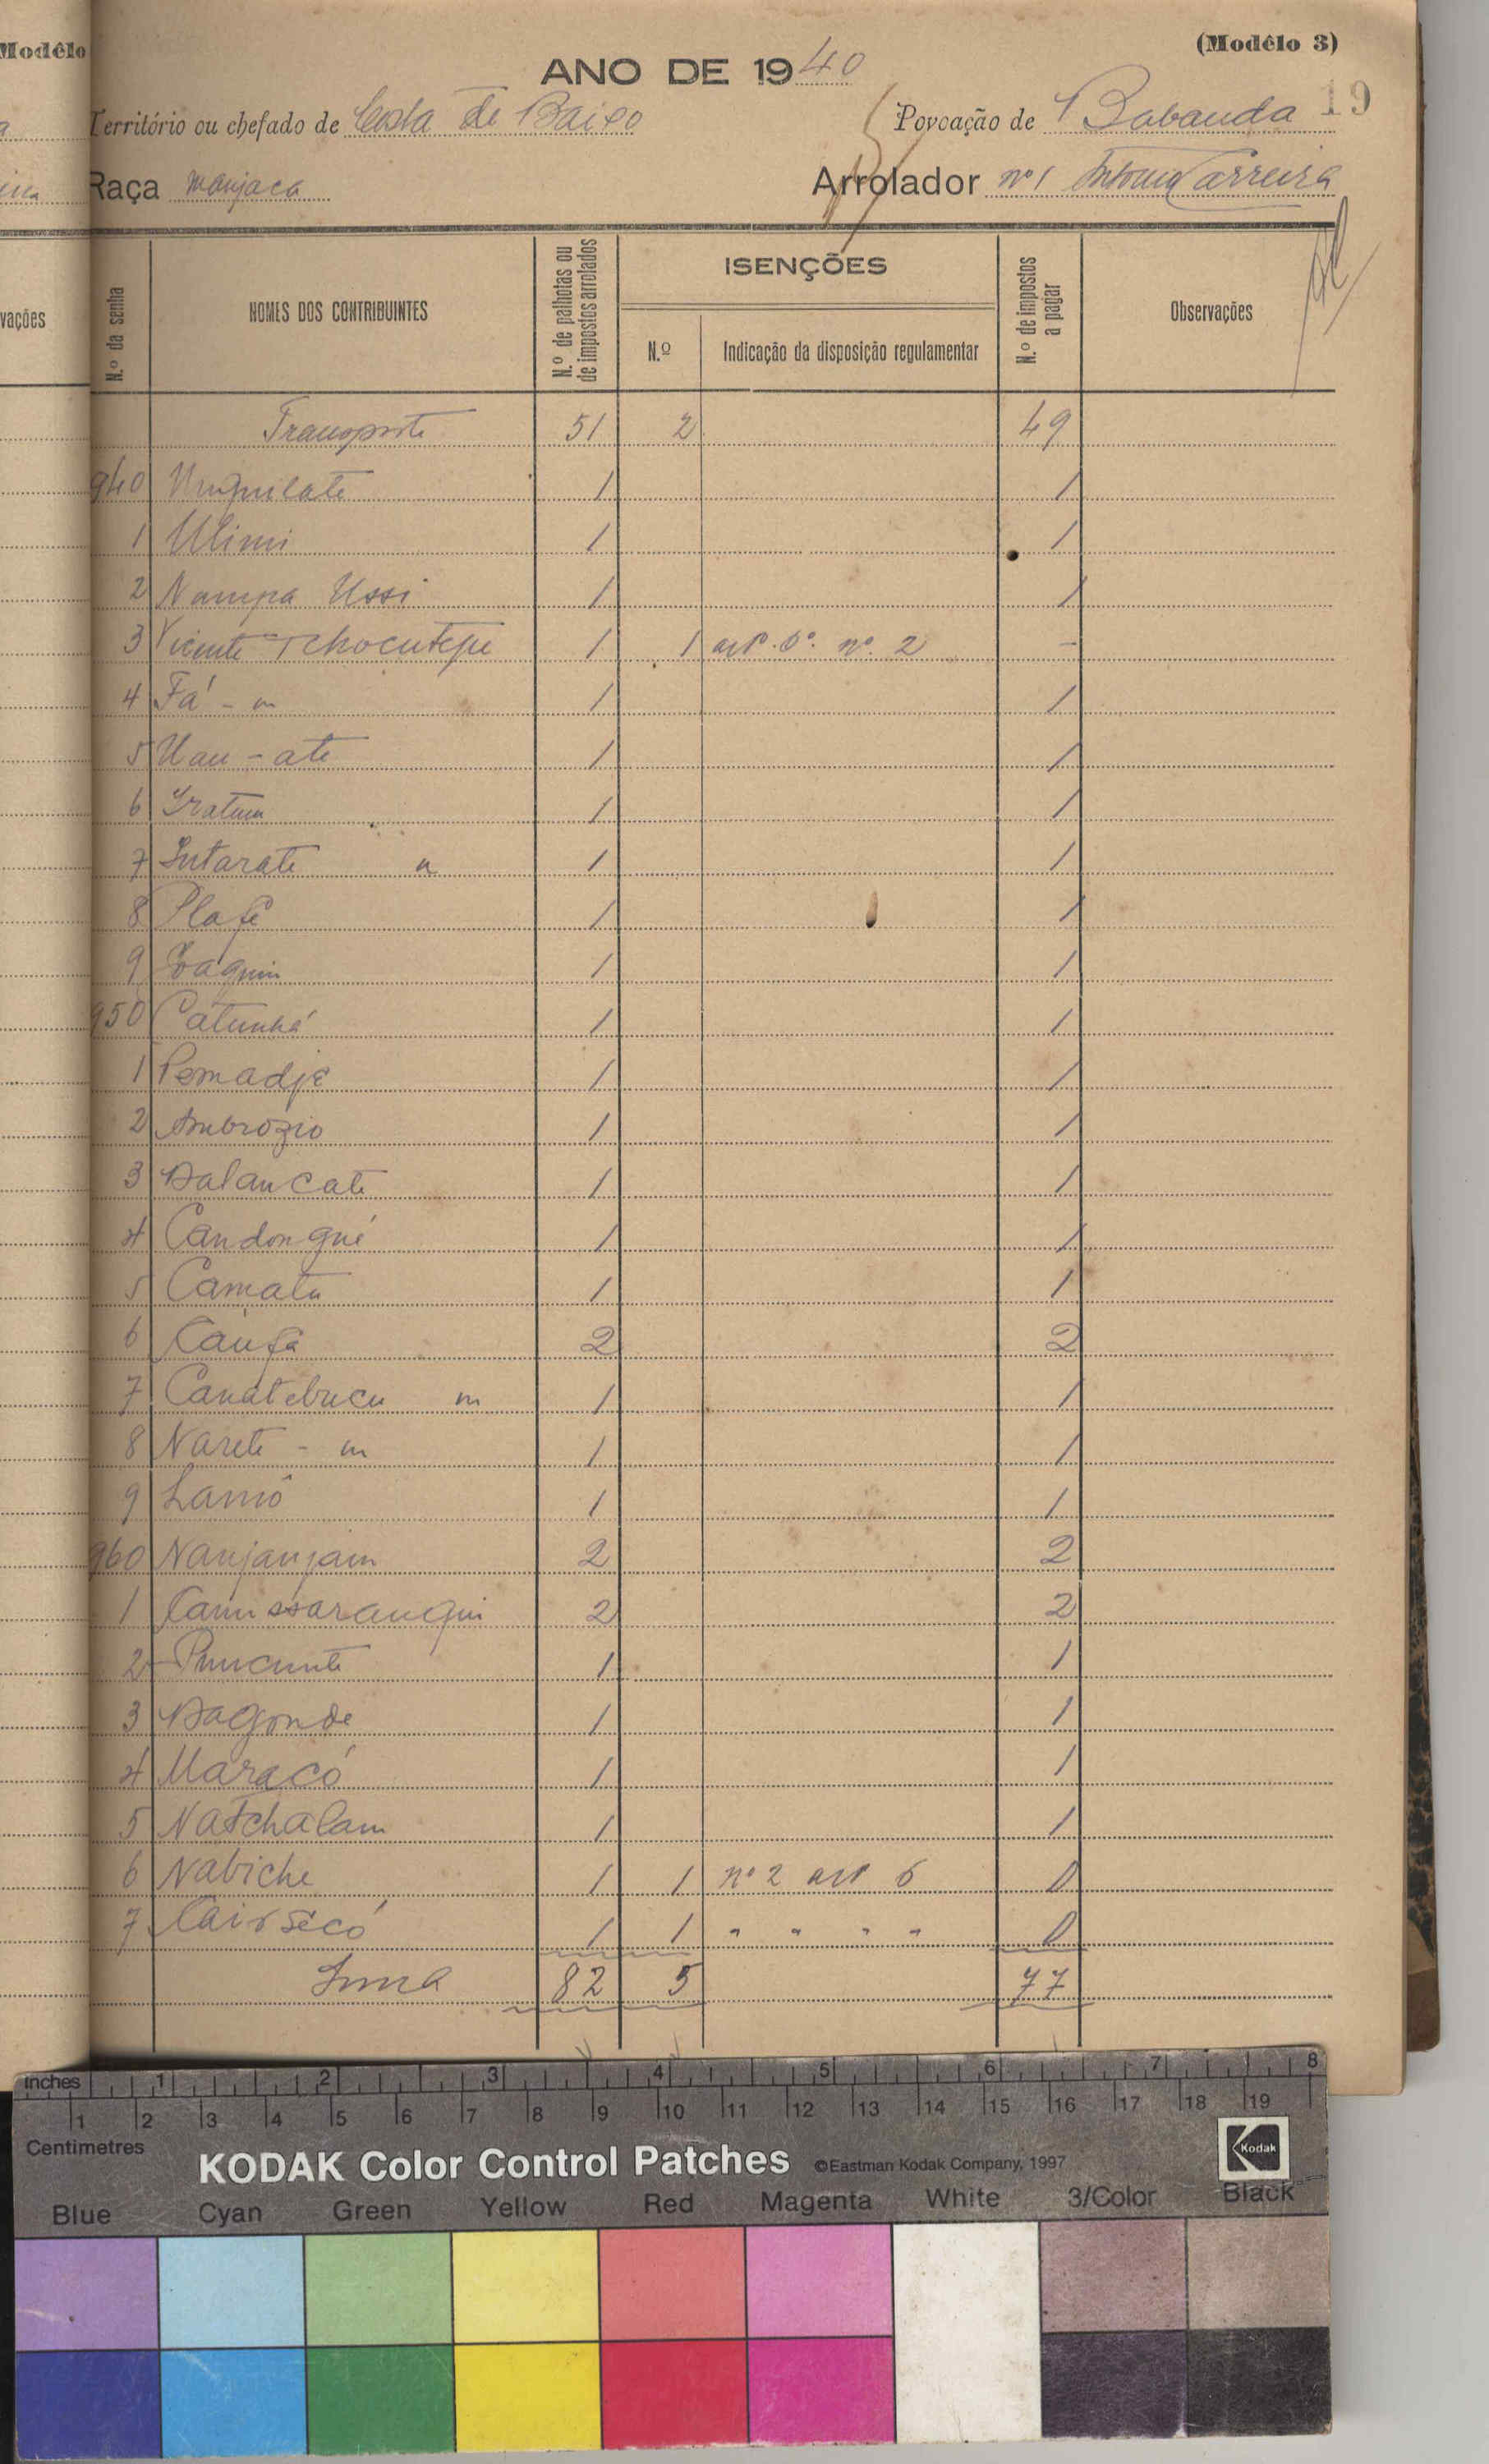 (Modêlo 3)
Modêlo
ANO DE 1940
19
Território ou chefado de Costa de Baixo Povoação de Babanda
Raça manjaca Arrolador nº 1 Antonio Carreira
vações
N.º da senha
NOMES DOS CONTRIBUINTES
N.º de palhotas ou de impostos arrolados
ISENÇÕES
N.º
Indicação da disposição regulamentar
N.º de impostos a pagar
Observações
Transporte 51 2 49
940 1 1
1 Ulimi 1 1
2 Nampa Ussi 1 1
3 Vicente Tchocutepe 1 1 artº. 6º. nº. 2 -
4 Fá - m 1 1
5 Uau - ate 1 1
6 1 1
7 Intarate a 1 1
8 Plafé 1 1
9 Joaquim 1 1
950 Catunhá 1 1
1 Pemadje 1 1
2 Ambrozio 1 1
3 Dalancate 1 1
4 Candongué 1 1
5 Camata 1 1
6 Caufa 2 2
7 Canatebucu m 1 1
8 Narete - m 1 1
9 Lamô 1 1
960 Nanjanjam 2 2
1 Camssarangui 2 2
2 1 1
3 Dagonde 1 1
4 Maracó 1 1
5 Natchalam 1 1
6 Nabiche 1 1 nº 2 artº 6 0
7 1 1 " " " " 0
Suma 82 5 77
inches 1 2 3 4 5 6 7 8
1 2 3 4 5 6 7 8 9 10 11 12 13 14 15 16 17 18 19
Centimetres
KODAK Color Control Patches ©Eastman Kodak Company, 1997 Kodak
Blue Cyan Green Yellow Red Magenta White 3/Color Black